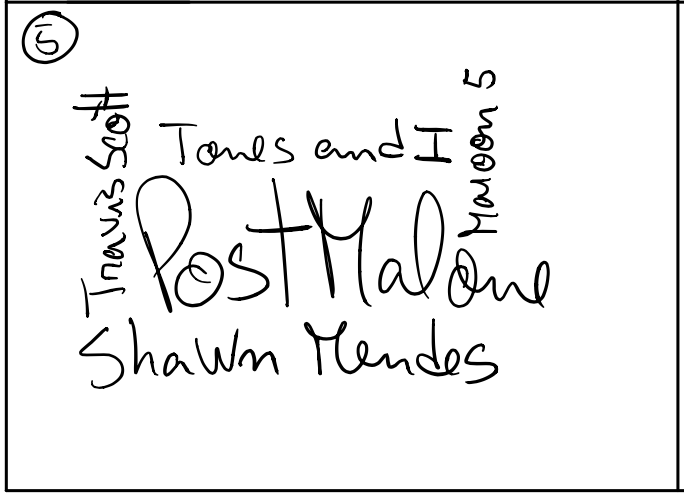 5
Travis Scott
Tones and I
Maroon 5
Post Malone
Shawn Mendes